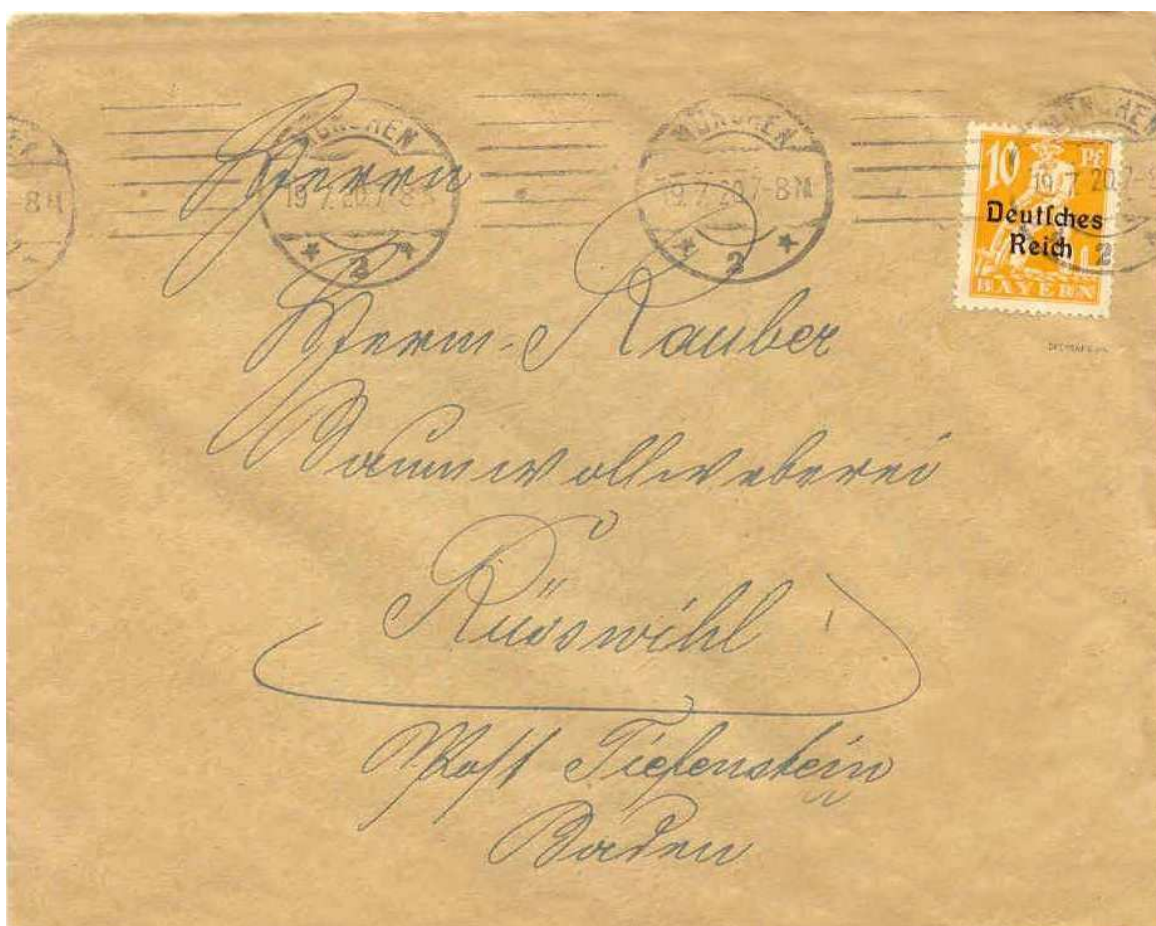 MÜNCHEN
19.7.20.7-8 N.
* 2 *
MÜNCHEN
19.7.20.7-8 N.
* 2 *
MÜNCHEN
19.7.20.7-8 N.
2
8 N
10 Pf
Deutſches
Reich
BAYERN
Herrn
Herm. Rauber
Baumwollweberei
Rüsswihl
Post Tiefenstein
Baden